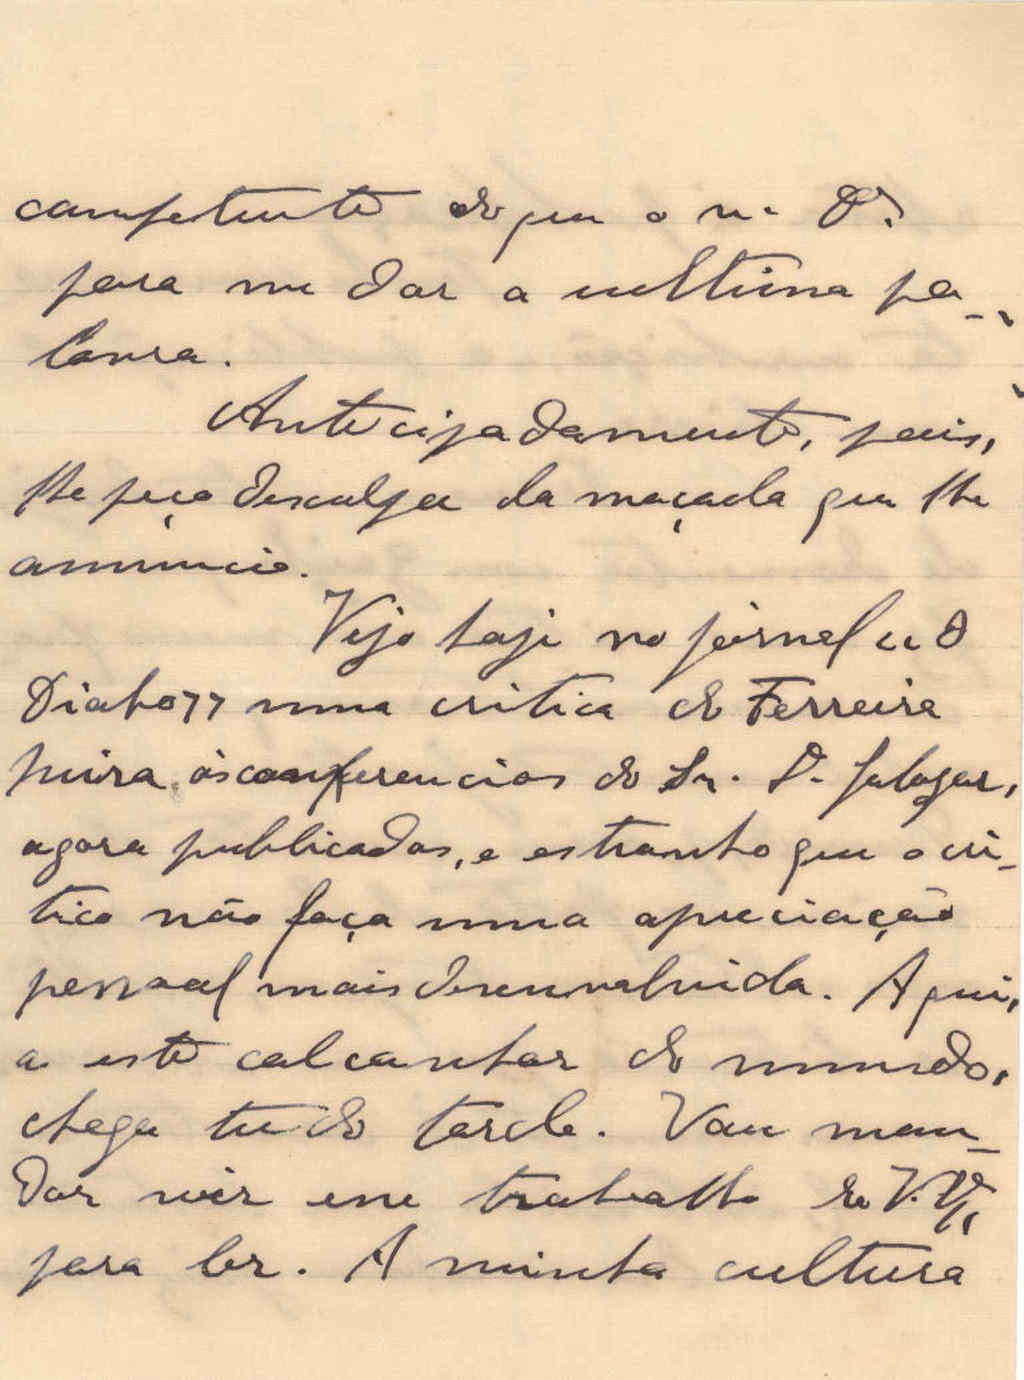 competente do que o m. Dr.
para me dar a ultima pa-
lavra.
Antecipadamente, pois,
lhe peço desculpa da maçada que lhe
annuncio.
Vejo hoje no jornal "O
Diabo" uma critica de Ferreira
ás conferencias do Sr. Dr. Salazar,
agora publicadas, e estranho que o cri-
tico não faça uma apreciação
pessoal mais desenvolvida. Aqui,
a este calcanhar do mundo,
chega tudo tarde. Vou man-
dar vir esse trabalho de V. Exª,
para ler. A minha cultura